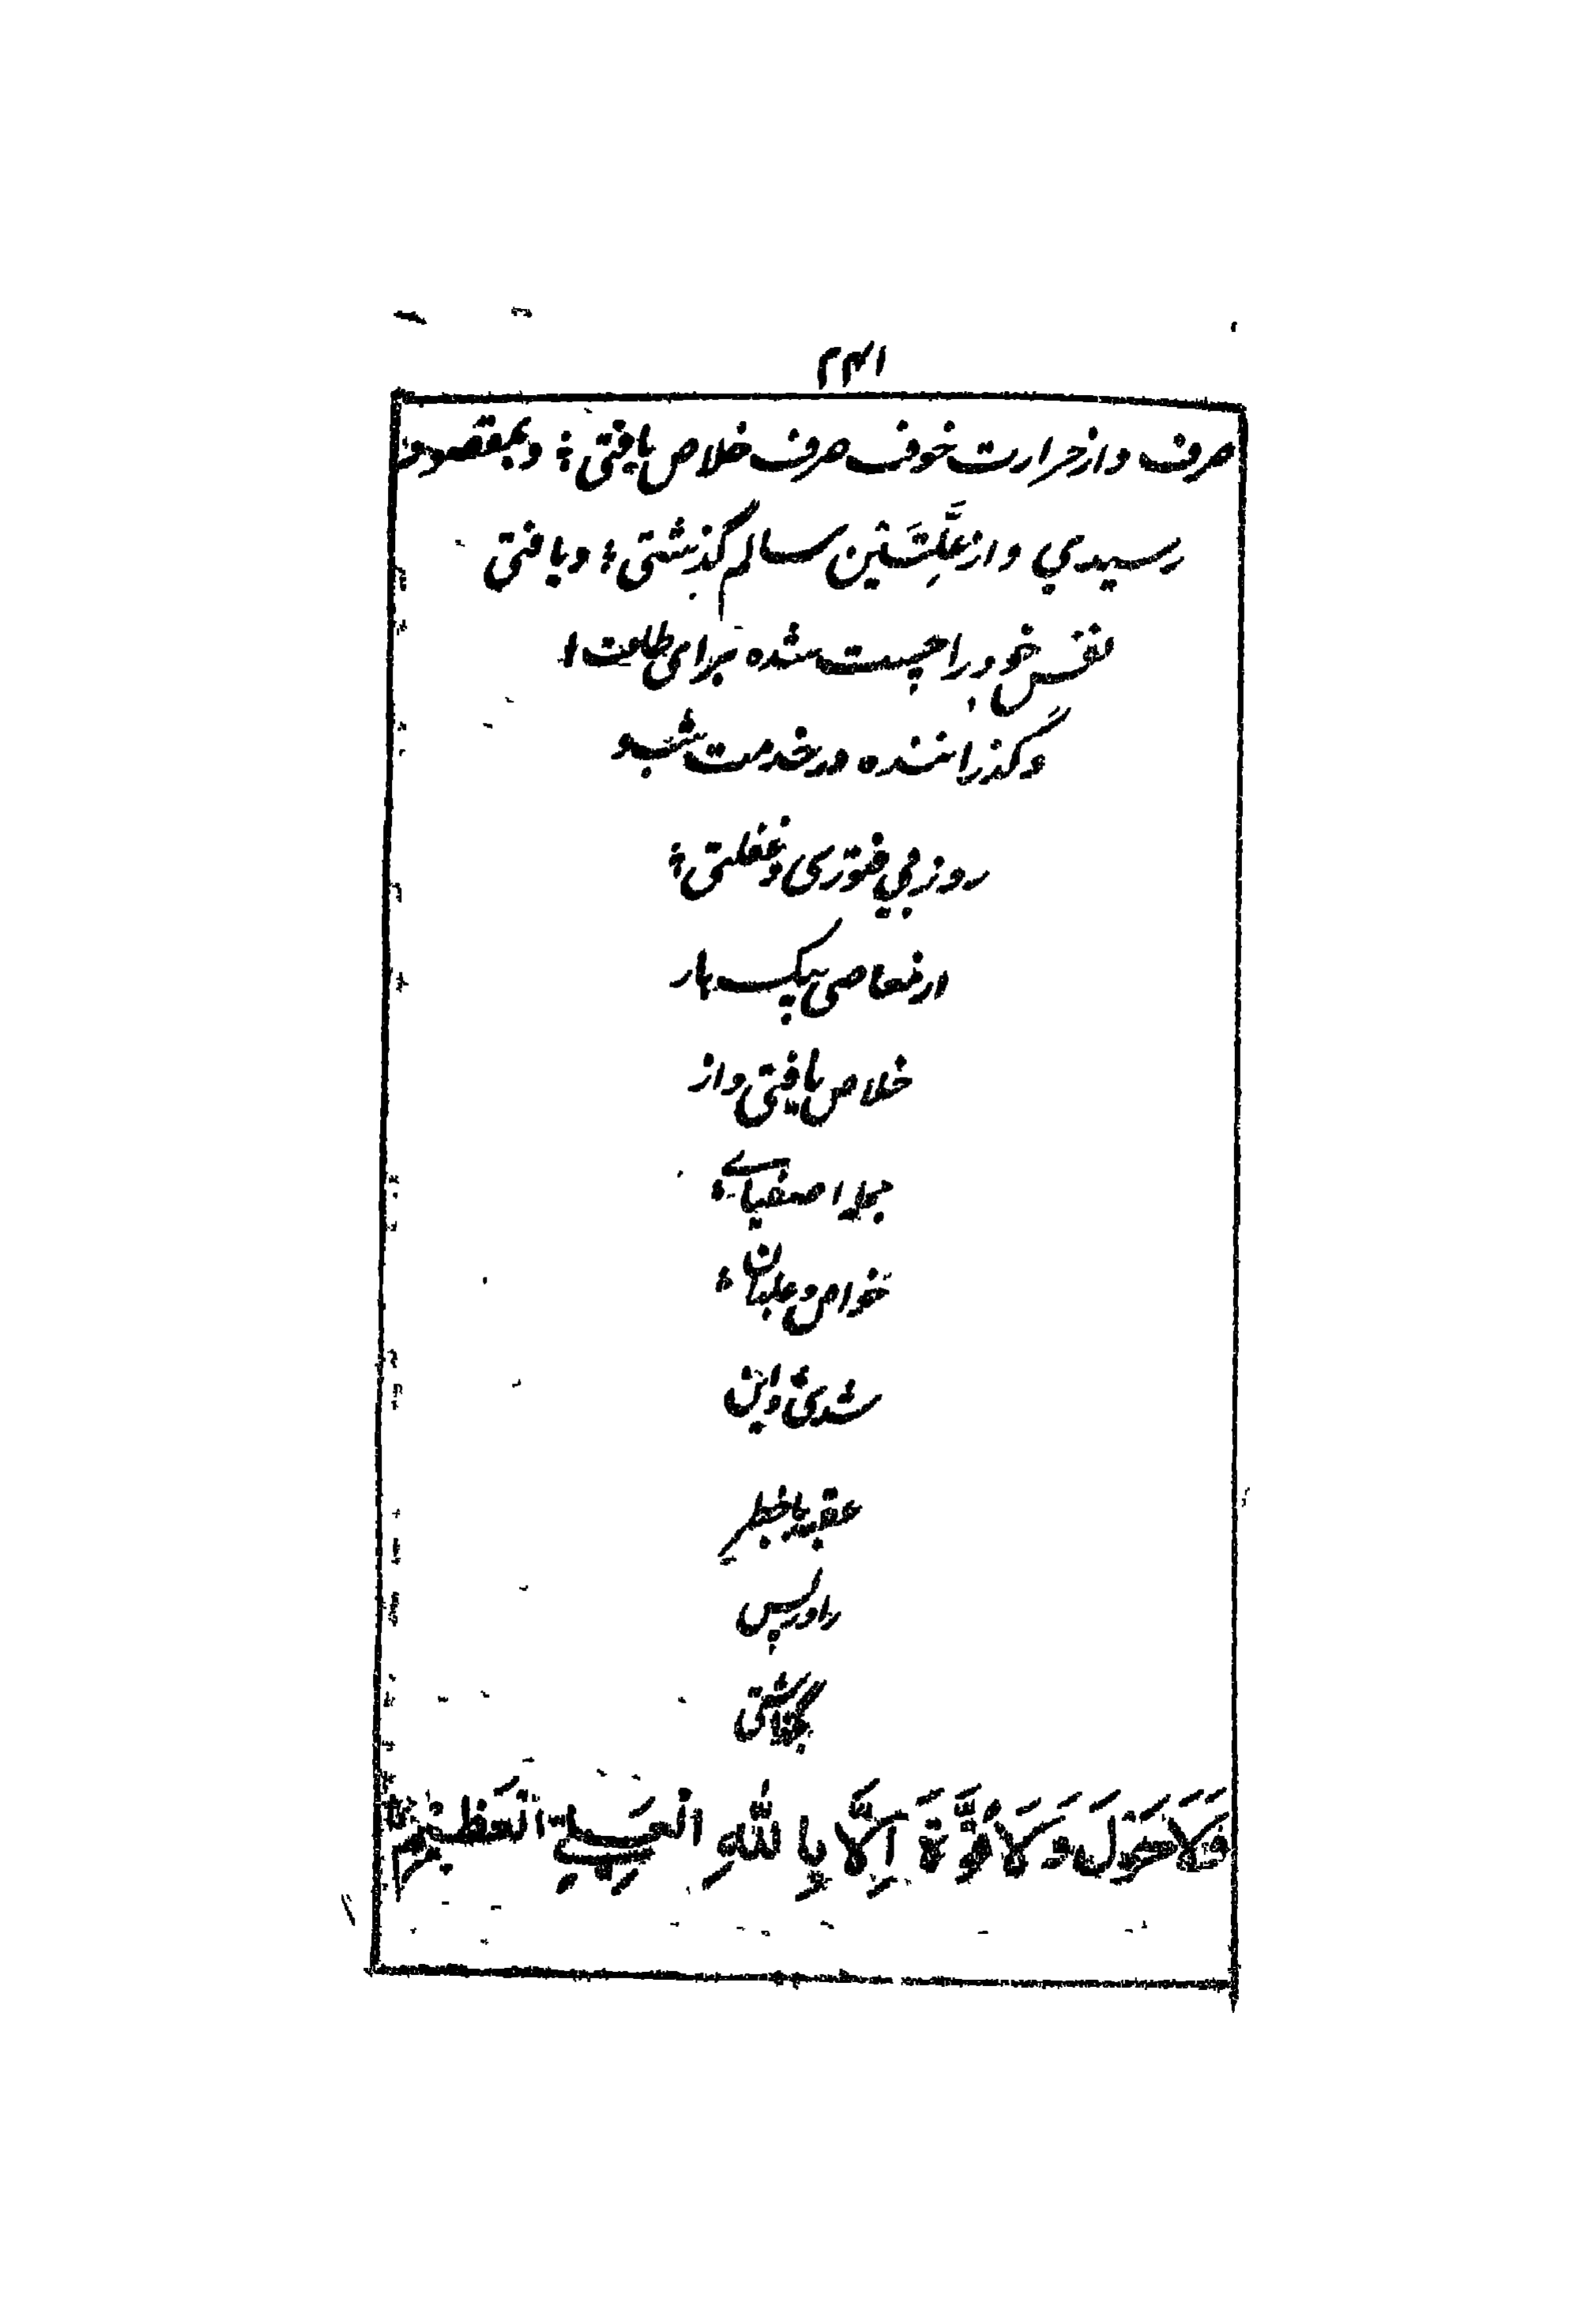 ۲۴۱
صرف و از حرارت خوف صرف خلاص یافتی ؛ و بمقصود
رسیدي و از عِلَّتَین سالم گذشتی ؛ و یافتی
نفس خود را چست شده برای طاعت ؛
و گذراننده در خدمت شب و
روز بي فتوری و غفلتی ؛
از معاصی یک بار
خلاص یافتی و از
جمله اصفیاے ؛
خواص و
شدی و این
عقبه با خطر
را در پس
گذاشتی
فَلَا حَوْلَ وَلَا قُوَّةَ اِلَّا بِاللّٰهِ الْعَلِيِّ الْعَظِيْمِ